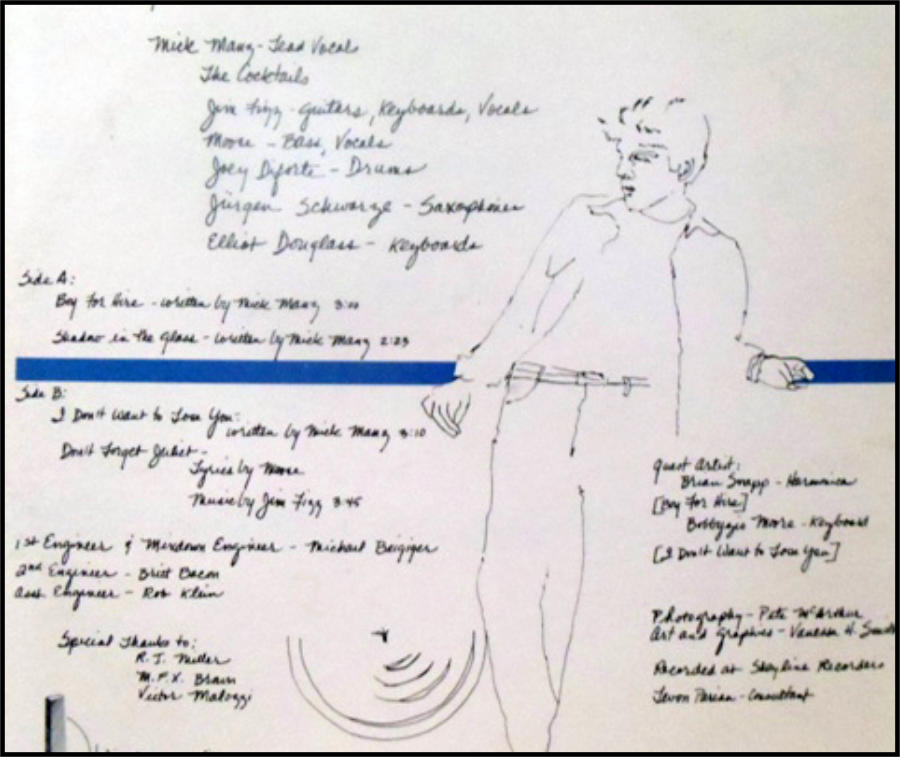 Mick Manz - Lead Vocals
The Cocktails
Jim Fizz - guitars, Keyboards, Vocals
Moose - Bass, Vocals
Joey Diforte - Drums
Jürgen Schwarze - Saxophones
Elliot Douglass - Keyboards
Side A:
Boy For Hire - written by Mick Manz 3:00
Shadow in the Glass - written by Mick Manz 2:23
Side B:
I Don't Want to Lose You:
written by Mick Manz 3:10
Don't Forget Juliet -
Lyrics by Moose
Music by Jim Fizz 3:45
1st Engineer & Mixdown Engineer - Michael Beigiger
2nd Engineer - Britt Bacon
Asst. Engineer - Rob Klein
Special Thanks to:
R.J. Miller
M.F.X. Braun
Victor Malozzi
guest Artist:
Brian Snapp - Harmonica
[Boy For Hire]
Moore - Keyboard
[I Don't Want to Lose You]
Photography - Pete McArthur
Art and Graphics - Vanessa H. Smith
Recorded at Skyline Recorders
Levon Parian - Consultant